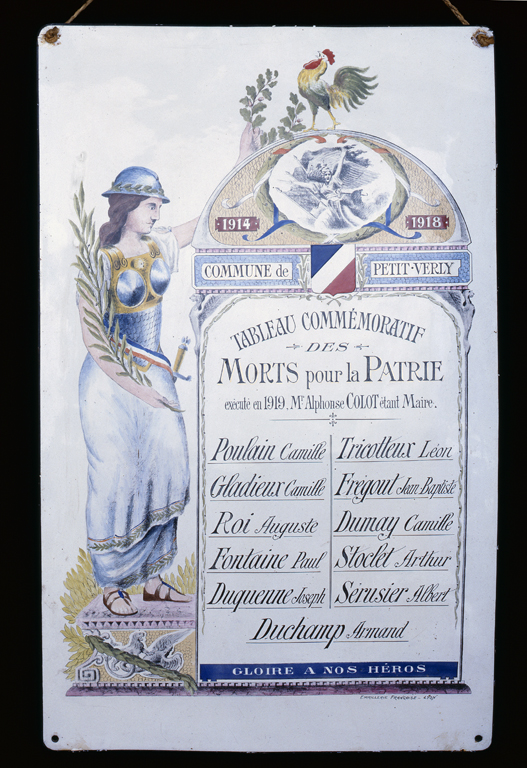 1914 1918
COMMUNE de PETIT-VERLY
TABLEAU COMMÉMORATIF
DES
MORTS pour la PATRIE
exécuté en 1919, Mr Alphonse COLOT étant Maire.
Poulain Camille
Gladieux Camille
Roi Auguste
Fontaine Paul
Duquenne Joseph
Tricotteux Léon
Frégout Jean-Baptiste
Dumay Camille
Stoclet Arthur
Sérusier Albert
Duchamp Armand
GLOIRE A NOS HÉROS